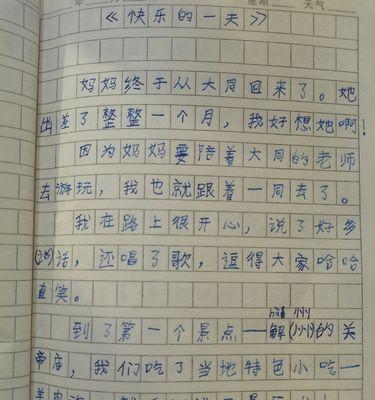 年 星期 天气
《快乐的一天》
妈妈终于从大同回来了。她
出差了整整一个月，我好想她啊！
因为妈妈要陪着大同的老师
去游玩，我也就跟着一同去了。
我在路上很开心，说了好多
话，还唱了歌，逗得大家哈哈
直笑。
到了第一个景点——解(州)的关
帝庙，我们吃了当地特色小吃一
羊肉